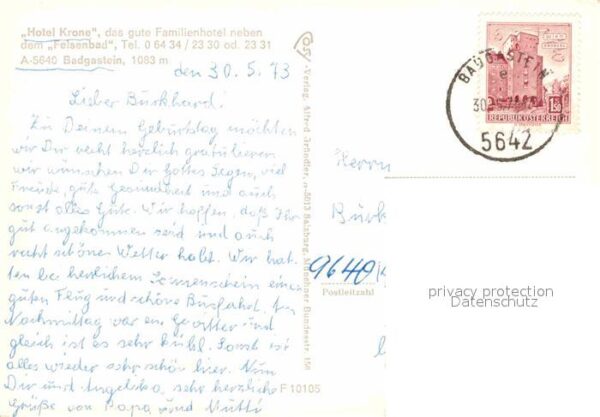 „Hotel Krone", das gute Familienhotel neben
dem „Felsenbad", Tel. 0 64 34 / 23 30 od. 23 31
A-5640 Badgastein, 1083 m
den 30.5.73
Lieber Burkhard!
Zu Deinem Geburtstag möchten
wir Dir recht herzlich gratulieren
wir wünschen Dir Gottes Segen, viel
Freude, gute Gesundheit und auch
sonst alles Gute. Wir hoffen, daß Ihr
gut angekommen seid und auch
recht schönes Wetter habt. Wir hat-
ten bei herrlichem Sonnenschein einen
guten Flug und schöne Busfahrt. Am
Nachmittag war ein Gewitter und
gleich ist es sehr kühl. Sonst ist
alles wieder sehr schön hier. Nun
Dir und Angelika, sehr herzliche
Grüße von Papa und Mutti
F 10105
Verlag Alfred Brändler, A-5013 Salzburg, Münchner Bundesstr. 158
BADGASTEIN
e
5642
1.50
REPUBLIK ÖSTERREICH
Herrn
Burk
9640
Postleitzahl
privacy protection
Datenschutz